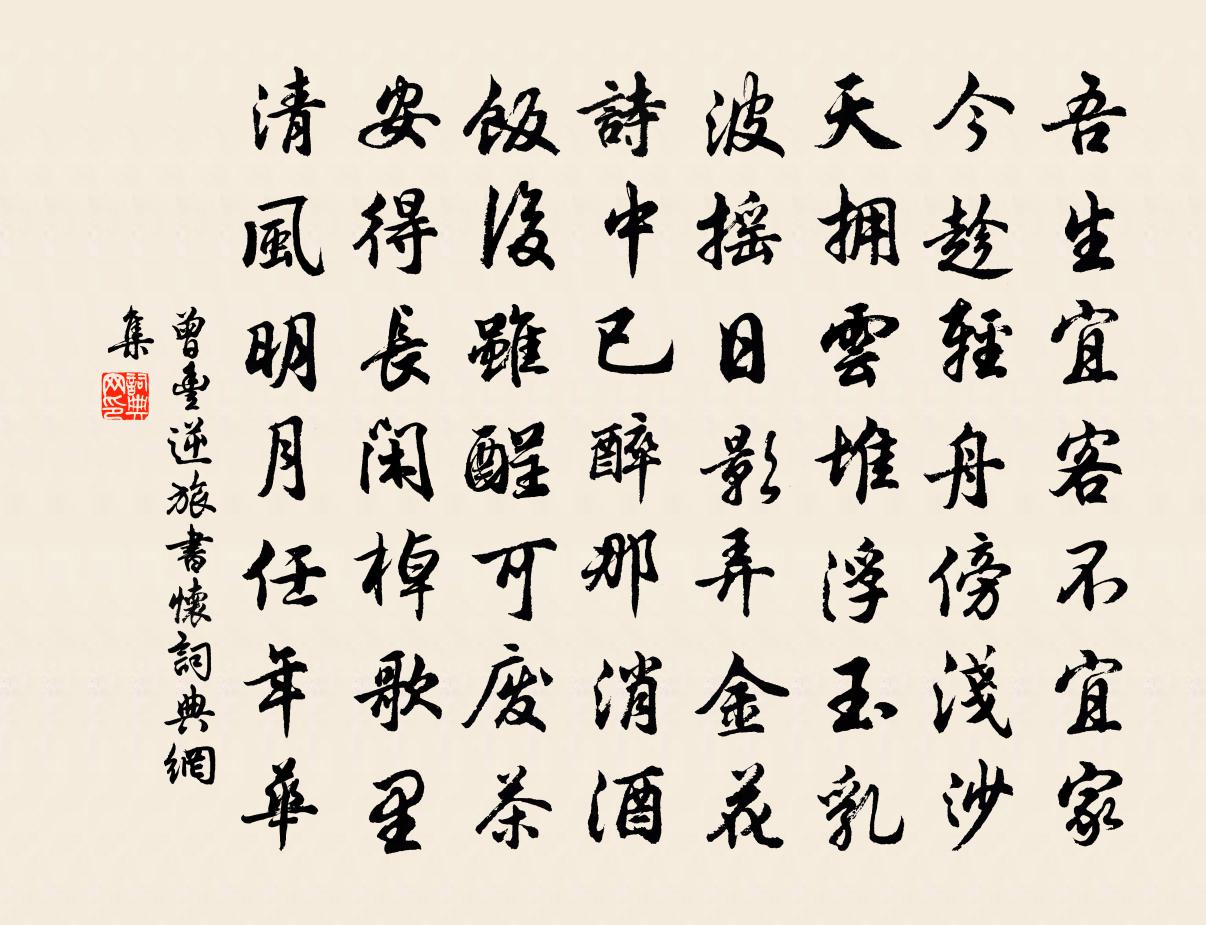 吾生宜客不宜家
今趁輕舟傍淺沙
天擁雲堆浮玉乳
波摇日影弄金花
詩中已醉那消酒
飯後雖醒可廢茶
安得長閑棹歌里
清風明月任年華
曾豐逆旅書懷詞典網
集
詞典
网印